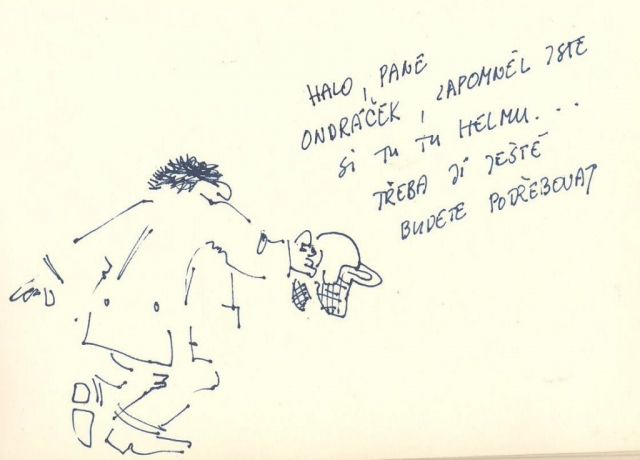 HALO, PANE
ONDRÁČEK, ZAPOMNĚL JSTE
SI TU TU HELMU...
TŘEBA JÍ JEŠTĚ
BUDETE POTŘEBOVAT